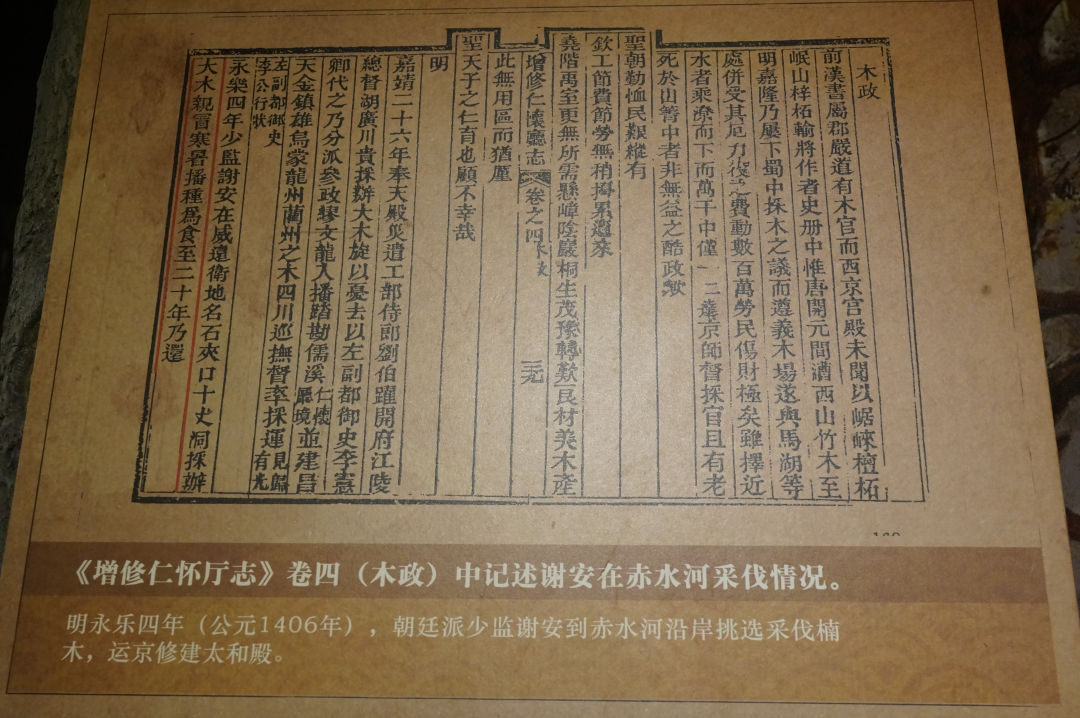 木政
前漢書屬郡嚴道有木官而西京宮殿未聞以崌崍檀柘
岷山梓柘輸將作者史册中惟唐開元間漕西山竹木至
明嘉隆乃屢下蜀中採木之議而遵義木場遂與馬湖等
處併受其厄力役之費動數百萬勞民傷財極矣雖擇近
水者乘潦而下而萬千中僅一二達京師督採官且有老
死於山箐中者非無益之酷政歟
聖朝勤恤民艱縱有
欽工節費節勞無稍擾累邇來
堯階禹室更無所需懸崿陰巖桐生茂豫轉歎良材美木產
增修仁懷廳志 卷之四 木政 三九
此無用區而猶厪
聖天子之仁育也顧不幸哉
明
嘉靖二十六年奉天殿災遣工部侍郎劉伯躍開府江陵
總督湖廣川貴採辦大木旋以憂去以左副都御史李憲
卿代之乃分派參政繆文龍入播踏勘儒溪仁懷廳境並建昌
天全鎮雄烏蒙龍州藺州之木四川巡撫督率採運見歸有光
左副都御史李公行狀
永樂四年少監謝安在威遠衛地名石夾口十丈洞採辦
大木親冒寒暑播種為食至二十年乃還
《增修仁怀厅志》卷四（木政）中记述谢安在赤水河采伐情况。
明永乐四年（公元1406年），朝廷派少监谢安到赤水河沿岸挑选采伐楠
木，运京修建太和殿。